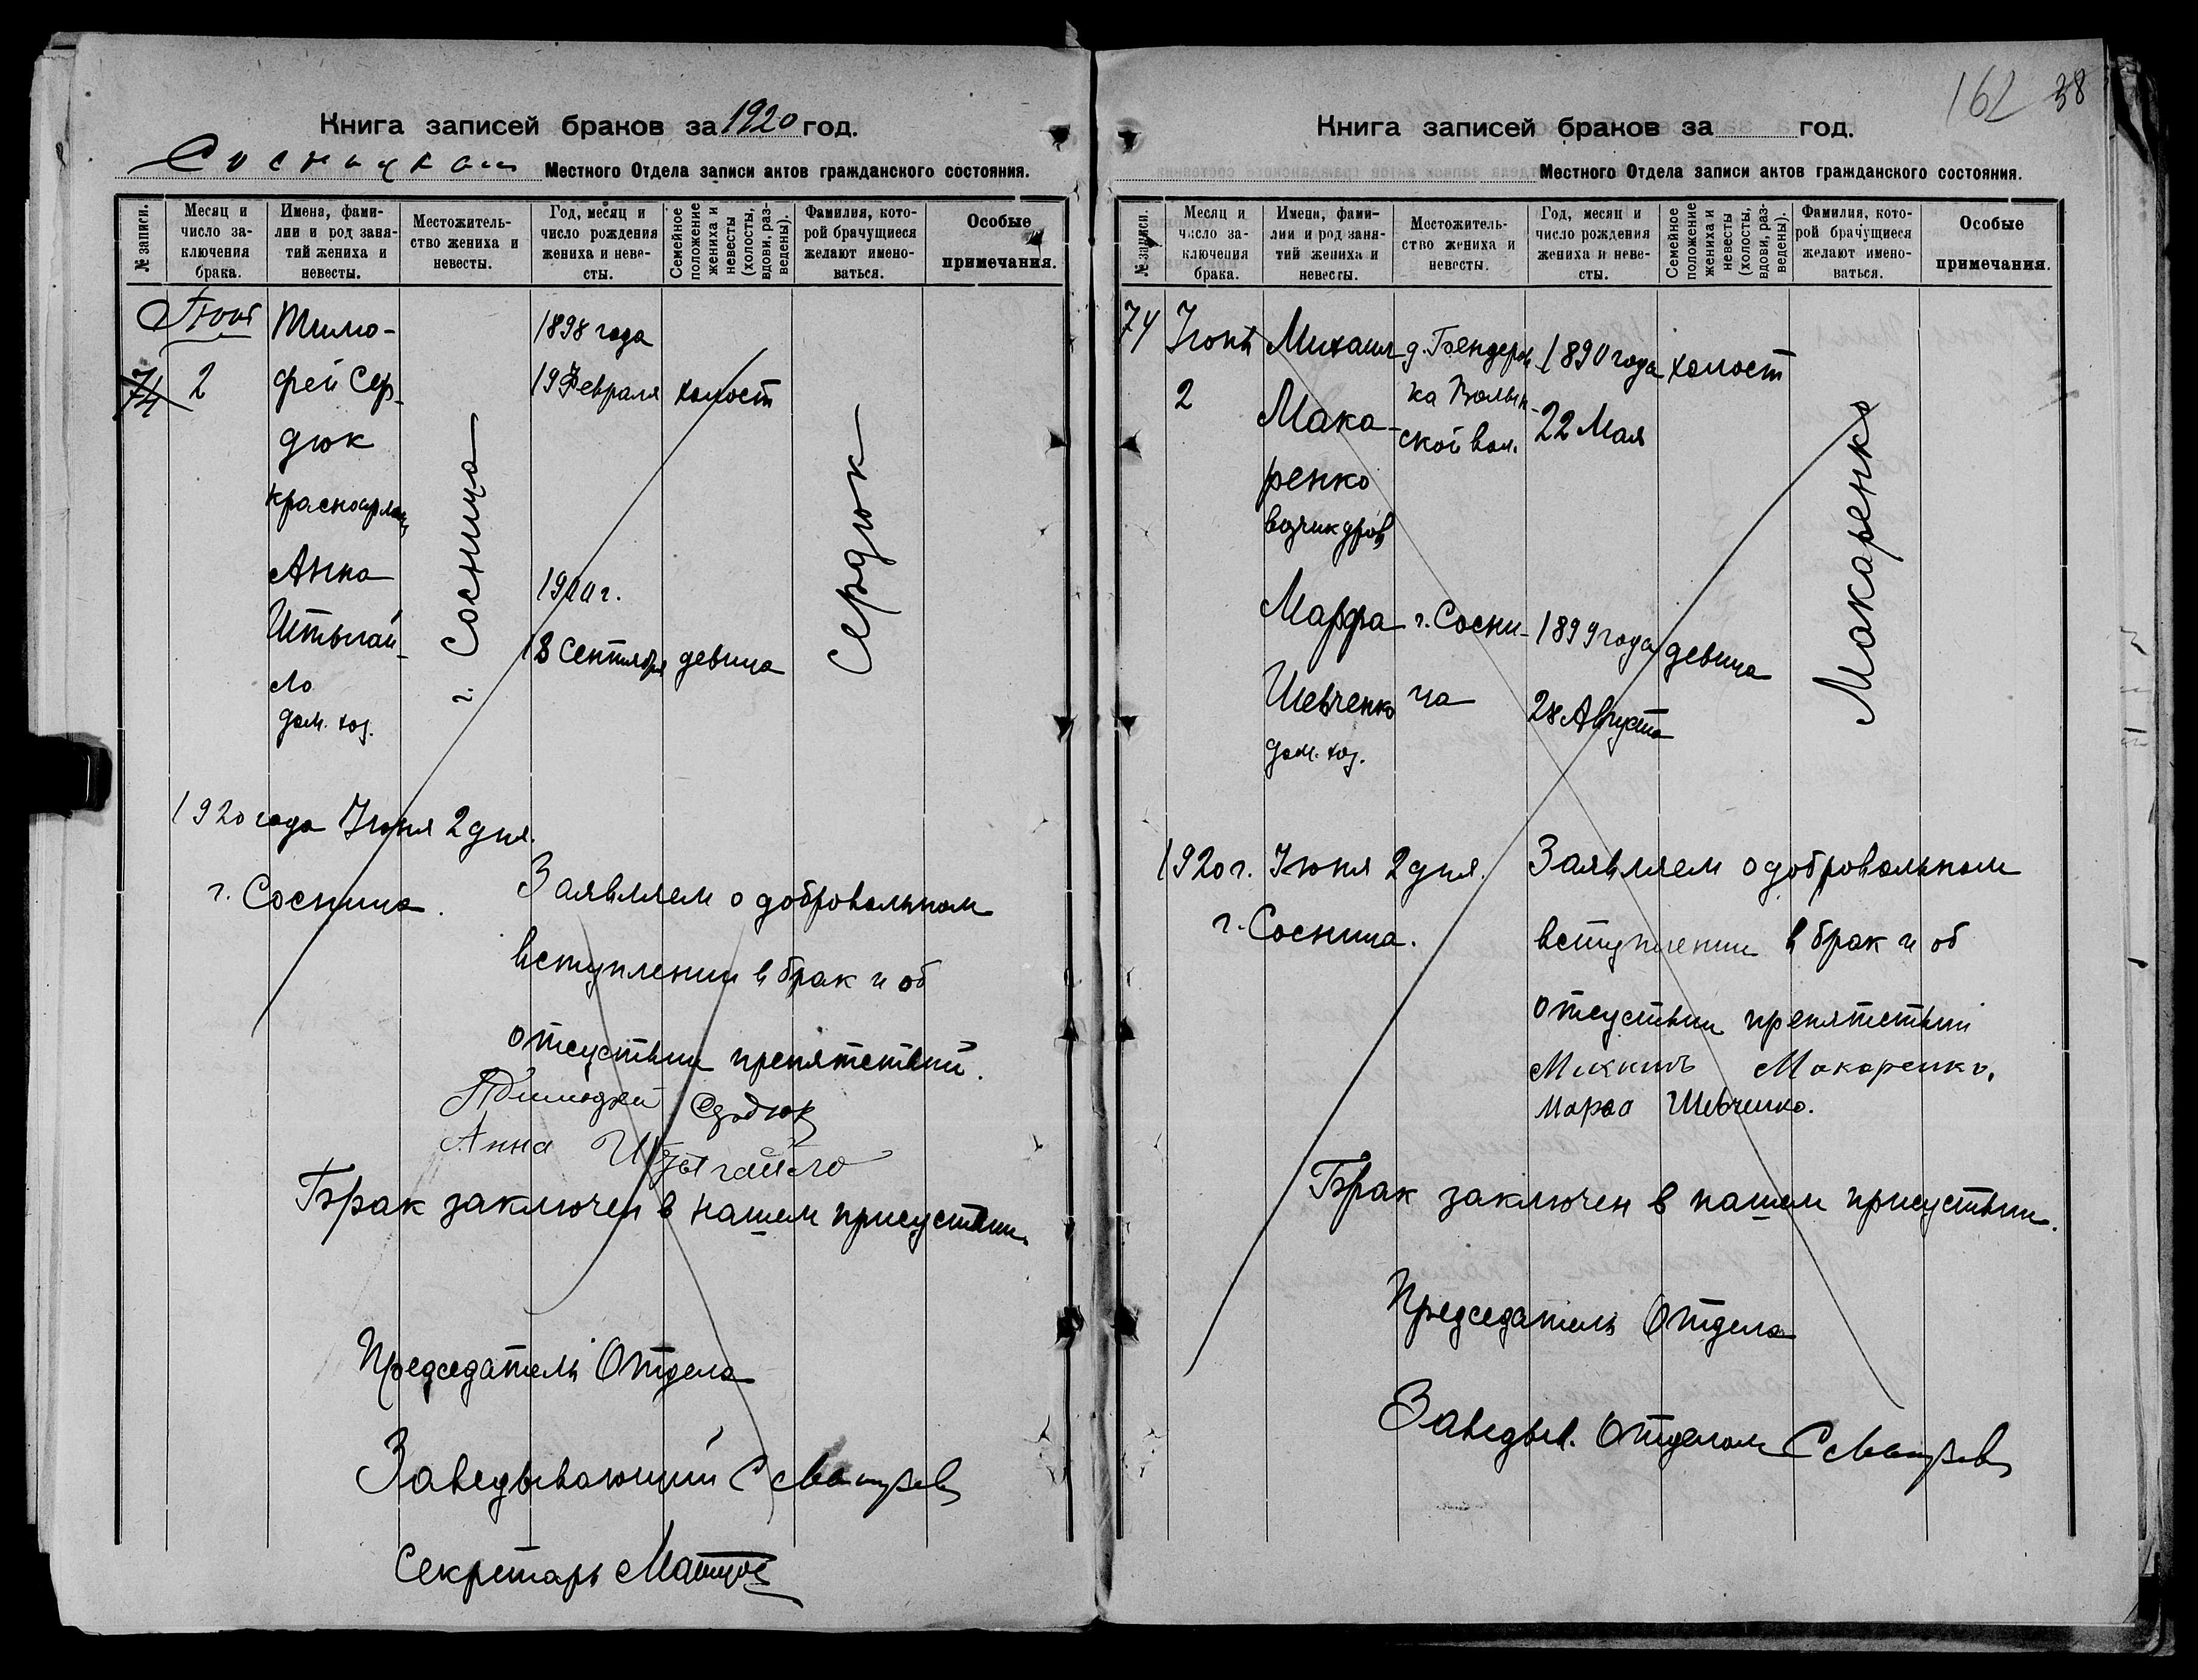 Книга записей браков за 1920 год.
Сосницкаго Местного Отдела записи актов гражданского состояния.
№ записи.
Месяц и число заключения брака.
Имена, фамилии и род занятий жениха и невесты.
Местожительство жениха и невесты.
Год, месяц и число рождения жениха и невесты.
Семейное положение жениха и невесты (холосты, вдовы, разведены).
Фамилия, которой брачущиеся желают именоваться.
Особые примечания.
2
Тимо-
фей Сер-
дюк
красноармеец
Анна
Штыгай-
ло
дом. хоз.
г. Сосница
1898 года
19 Февраля
1900 г.
18 Сентября
холост
девица
Сердюк
1920 года Июня 2 дня.
г. Сосница.
Заявляем о добровольном
вступлении в брак и об
отсуствии препятствий.
Сердюк
Анна Штыгайло
Брак заключен в нашем присуствии.
Председатель Отдела
Заведывающий
Секретарь
162 38
Книга записей браков за год.
Местного Отдела записи актов гражданского состояния.
№ записи.
Месяц и число заключения брака.
Имена, фамилии и род занятий жениха и невесты.
Местожительство жениха и невесты.
Год, месяц и число рождения жениха и невесты.
Семейное положение жениха и невесты (холосты, вдовы, разведены).
Фамилия, которой брачущиеся желают именоваться.
Особые примечания.
74
Июнь
2
Михаил
Мака-
ренко
возчик дров
Марфа
Шевченко
дом. хоз.
д. Бендеров
ка Волын-
ской вол.
г. Сосни-
ца
1890 года
22 Мая
1899 года
28 Августа
холост
девица
Макаренко
1920 г. Июня 2 дня.
г. Сосница.
Заявляем о добровольном
вступлении в брак и об
отсуствии препятствий
Макаренко.
Шевченко.
Брак заключен в нашем присуствии.
Председатель Отдела
Заведыв. Отделом